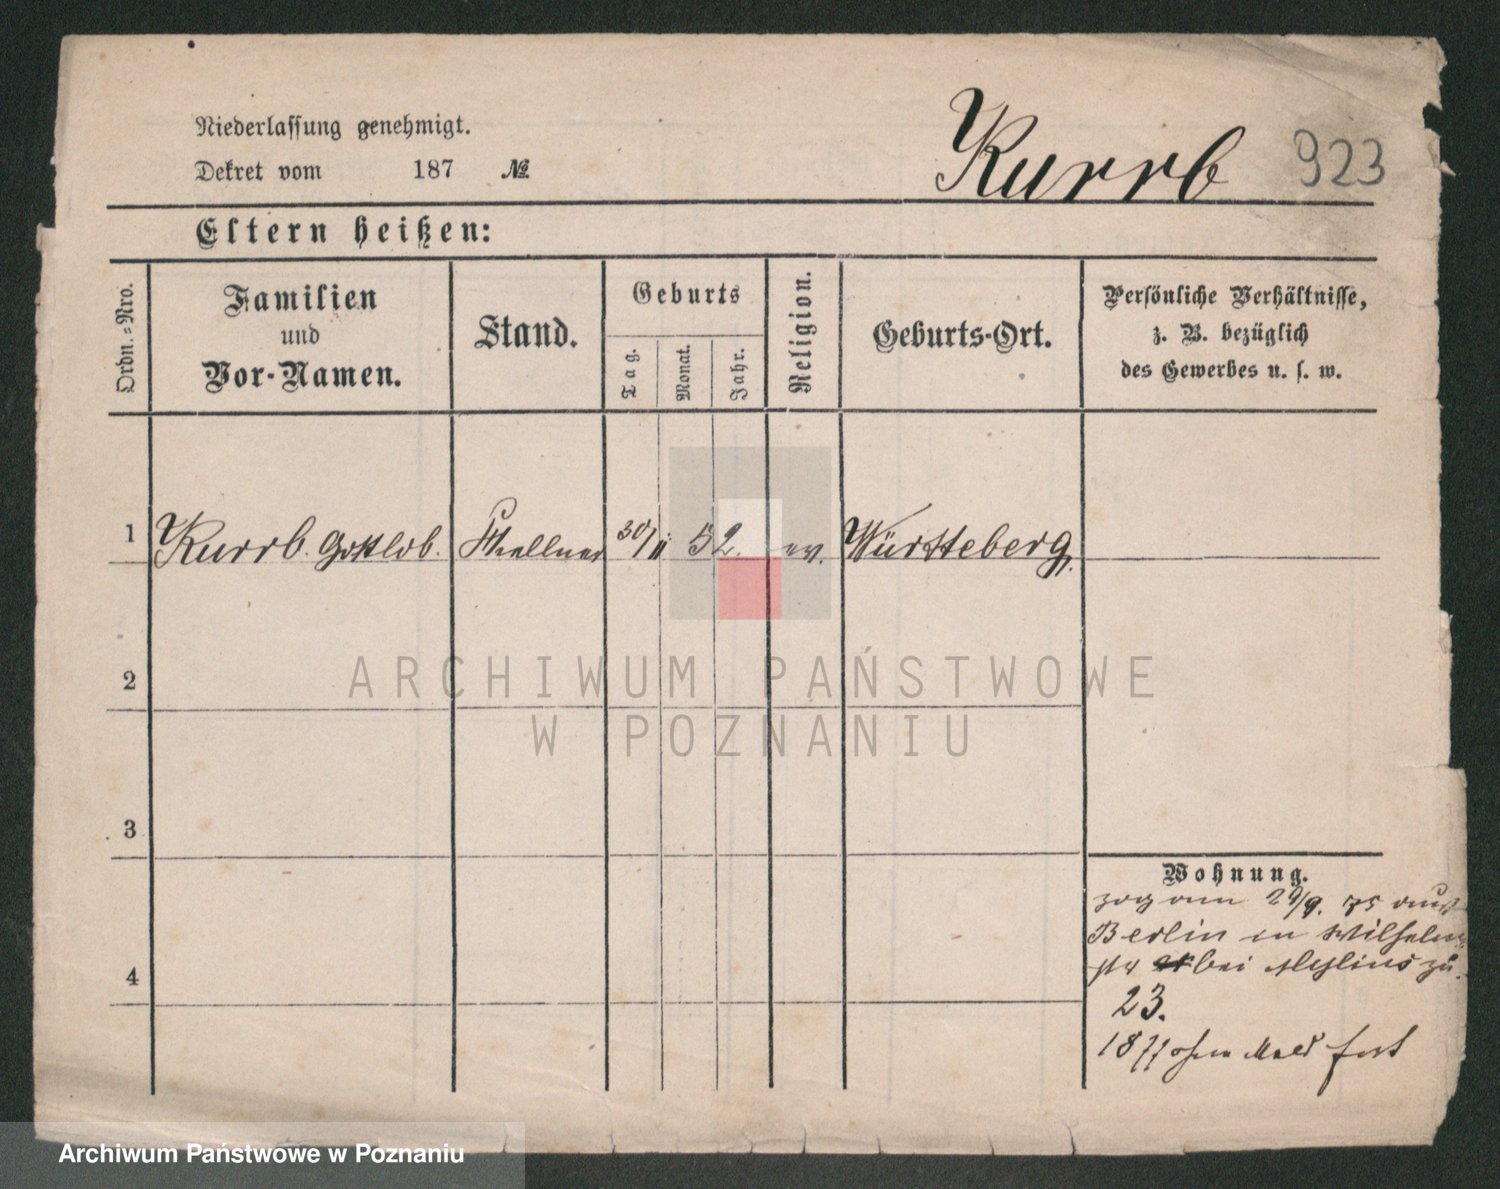 Niederlassung genehmigt.
Dekret vom 187 №
Kurrb 923
Eltern heißen:
Ordn.-Nro.
Familien
und
Vor-Namen.
Stand.
Geburts
Tag.
Monat.
Jahr.
Religion.
Geburts-Ort.
Persönliche Verhältnisse,
z. B. bezüglich
des Gewerbes u. s. w.
1 Kurrb. Gottlob. Kellner 30/11 52. ev. Württeberg.
2
3
4
ARCHIWUM PAŃSTWOWE
W POZNANIU
Wohnung.
zog am 29/9. 75 aus
Berlin in Wilhelm
str bei Mylius zu.
23.
1877 ohne Meld fort
Archiwum Państwowe w Poznaniu